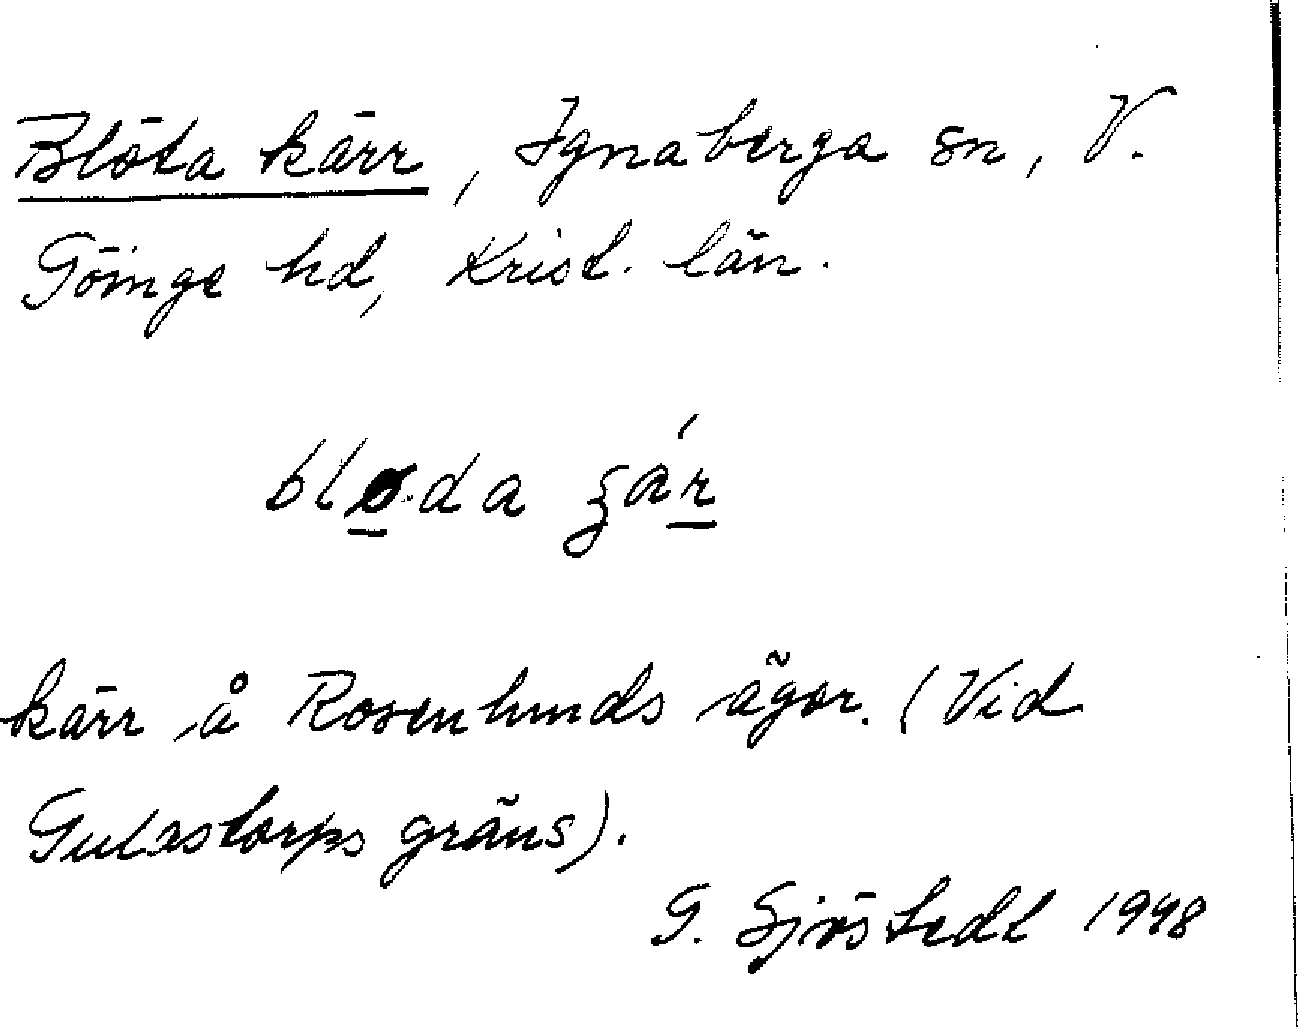 Blöta kärr, Ignaberga sn, V.
Göinge hd, Krist. län.
blø̲·da ʒár̲
kärr å Rosenlunds ägor. (Vid
gräns).
G. Sjöstedt 1948